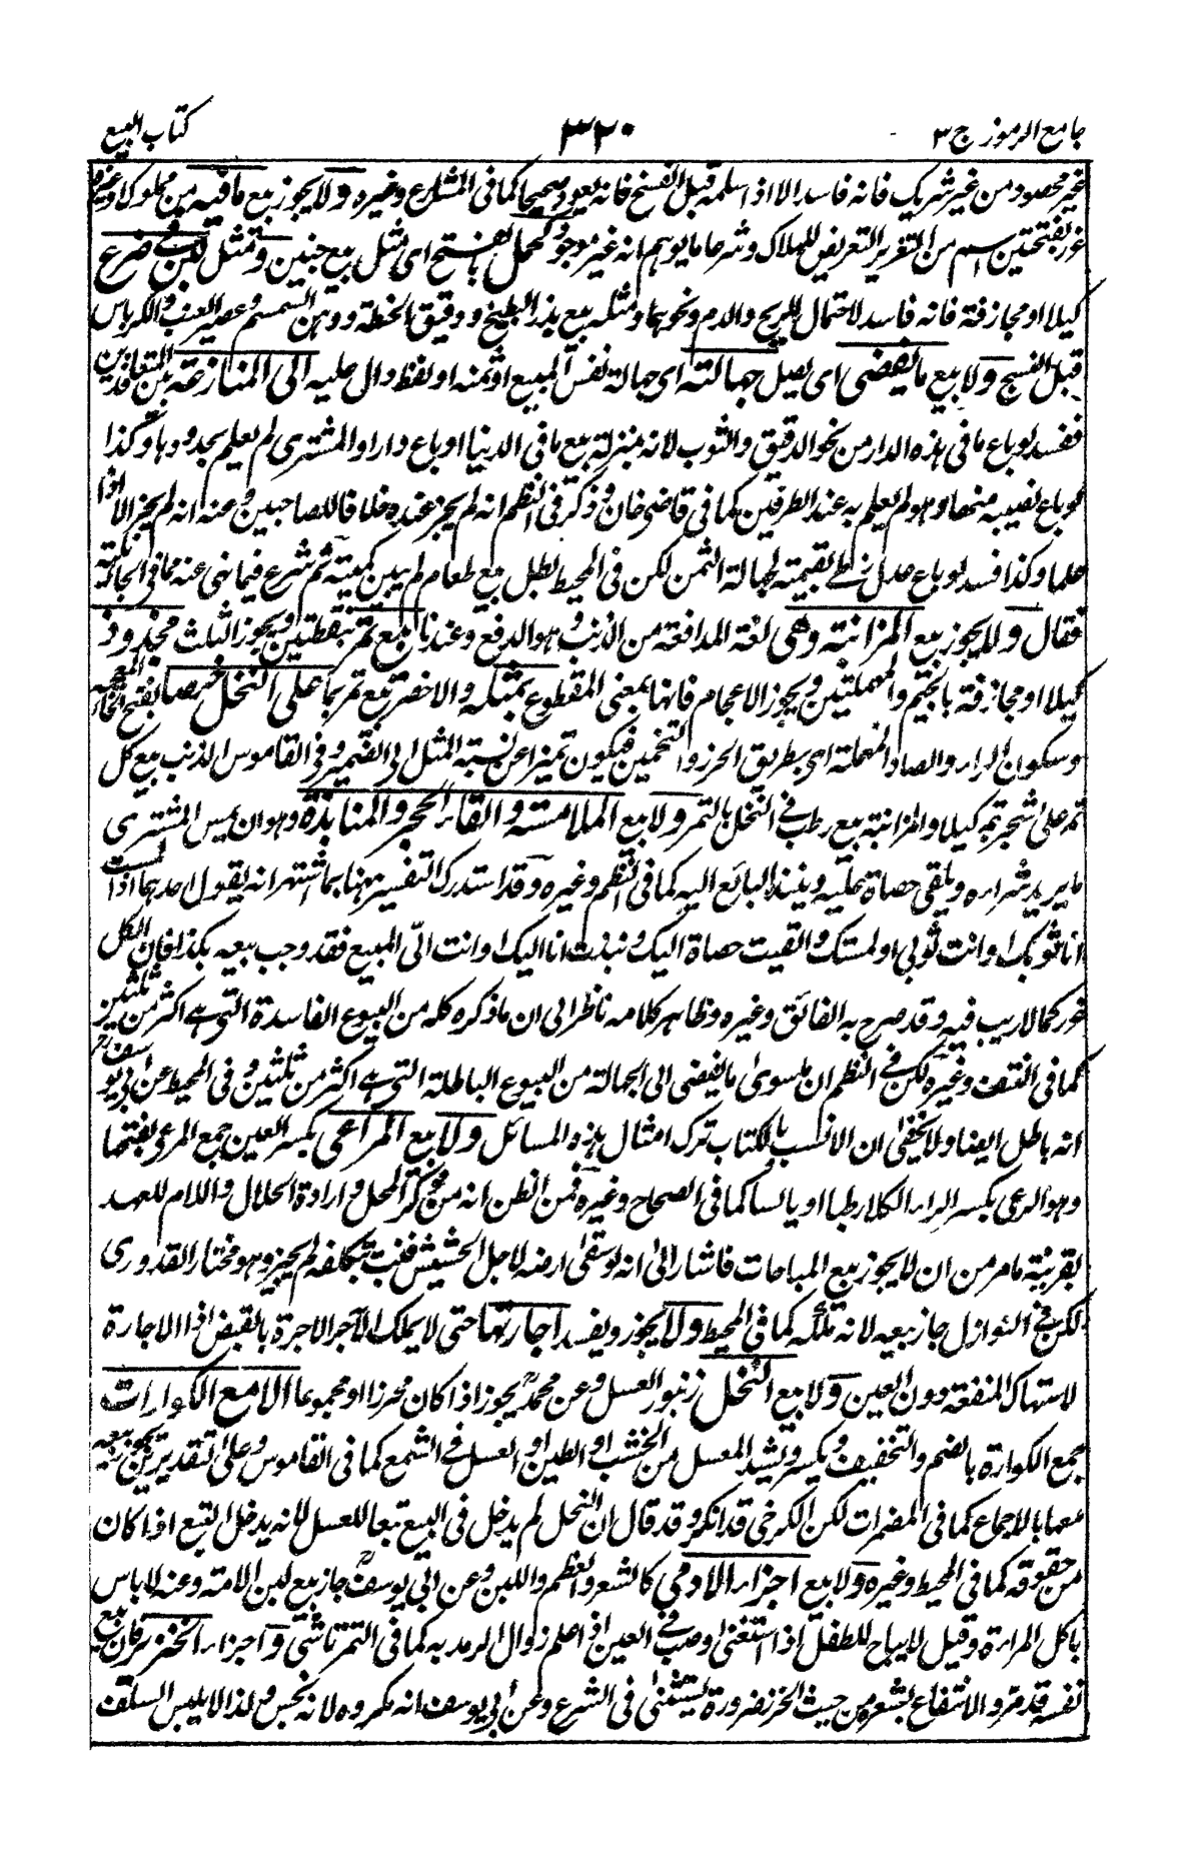 جامع الرموز ج ٣
٣٢٠
كتاب البيع
غير محصود من غير شريك فانه فاسد الا اذا سلمه قبل الفسخ فانه يعود صحيحا كما فى المشارع وغيره ولا يجوز بيع ما فيه من مجلوكلا وغيره
غرر بفتحتين اسم من التغرير التعريض للهلاك وشرعا ما يوهم انه غير موجود كحمل بالفتح اى مثل بيع جنين ومثل لبن فى ضرع
كيلا او مجازفة فانه فاسد لاحتمال الريح والدم ونحوهما ومثله بيع بذر البطيخ ودقيق الحنطة ودهن السمسم وعصير العنب والكرباس
قبل النسج ولا بيع ما يفضى اى يصل جهالته اى جهالة نفس المبيع او ثمنه او لفظ دال عليه الى المنازعة بين المتعاقدين
ففسد لو باع ما فى هذه الدار من نحو الدقيق والثوب لانه بمنزلة بيع ما فى الدنيا او باع دارا والمشترى لم يعلم بحدودها وكذا
لو باع نصيبه منها وهو لم يعلم به عند الطرفين كما فى قاضى خان وذكر فى النظم انه لم يجز عنده خلافا للصاحبين وعنه انه لم يجز الا اذا
علما وكذا فسد لو باع عدل زطى بقيمته لجهالة الثمن لكن فى المحيط بطل بيع طعام لم يبين كميته ثم شرع فيما نهى عنه مما فى الجاهلية
فقال ولا يجوز بيع المزابنة وهى لغة المدافعة من الذبن وهو الدفع وعندنا بيع تمر بنقطتين ويجوز الثلث مجذوذ
كيلا او مجازفة بالجيم والمهملتين ويجوز الاعجام فانها بمعنى المقطوع بمثله والاخضر بيع تمر بما على النخل خرصا بفتح الخاء المعجمة
وسكون الراء والصاد المهملة اى بطريق الحزر والتخمين فيكون تميزا عن نسبة المثل الى الضمير وفى القاموس الذبن بيع كل
ثمر على شجر بتمر كيلا والمزابنة بيع رطب فى النخل بالتمر ولا بيع الملامسة والقاء الحجر والمنابذة وهو ان يمس المشترى
ما يريد شراءه ويلقى حصاة عليه وينبذ البائع اليه كما فى النظم وغيره وقد استدرك التفسير هنا بما اشتهر انه يقول احدهما اذا لمست
انا ثوبك او انت ثوبى او لمستك والقيت حصاة اليك ونبذت انا اليك او انت الىّ المبيع فقد وجب بيعه بكذا فان الكل
غرر كما لا ريب فيه وقد صرح به الفائق وغيره وظاهر كلامه ناظر الى ان ما ذكره كله من البيوع الفاسدة التى هى اكثر من ثلثين
كما فى النتف وغيره لكن فى النظم ان ما سوى ما يفضى الى الجهالة من البيوع الباطلة التى هى اكثر من ثلثين وفى المحيط عن ابى يوسف
انه باطل ايضا ولا يخفى ان الانسب بالكتاب ترك امثال هذه المسائل ولا بيع المراعى بكسر العين جمع المرعى بفتحها
وهو الرعى بكسر الراء الكلا رطبا او يابسا كما فى الصحاح وغيره فمن الظن انه من ذكر المحل وارادة الحلال واللام للعهد
بقرينة ما مر من ان لا يجوز بيع المباحات فاشار الى انه لو سقى ارضه لاجل الحشيش فنبت بتكلفه لم يجز وهو مختار القدورى
لكن فى النوازل جاز بيعه لانه تملكه كما فى المحيط ولا يجوز ويفسد اجارتها حتى لا يملك الآجر الاجرة بالقبض اذ الاجارة
لاستهلاك المنفعة دون العين ولا بيع النحل زنبور العسل وعن محمد يجوز اذا كان محرزا او مجموعا الا مع الكوارات
جمع الكوارة بالضم والتخفيف ويكسر وتشد المعسل من الخشب او الطين او العسل فى الشمع كما فى القاموس وعلى التقديرين يجوز بيعه
معها بالاجماع كما فى المضمرات لكن الكرخى قد انكره وقد قال ان النحل لم يدخل فى البيع تبعا للعسل لانه يدخل التبع اذا كان
من حقوقه كما فى المحيط وغيره ولا بيع اجزاء الادمى كالشعر والعظم واللبن وعن ابى يوسف جاز بيع لبن الامة وعنه لا باس
باكل المرارة وقيل لا يباح للطفل اذا استغنى او صب فى العين اذا علم زوال الرمد به كما فى التمرتاشى واجزاء الخنزير فان بيع
نفسه قد مر والانتفاع بشعره من حيث الخرز ضرورة يستثنى فى الشرع وعن ابى يوسف انه مكروه لانه نجس ولهذا لا يلبس السلف